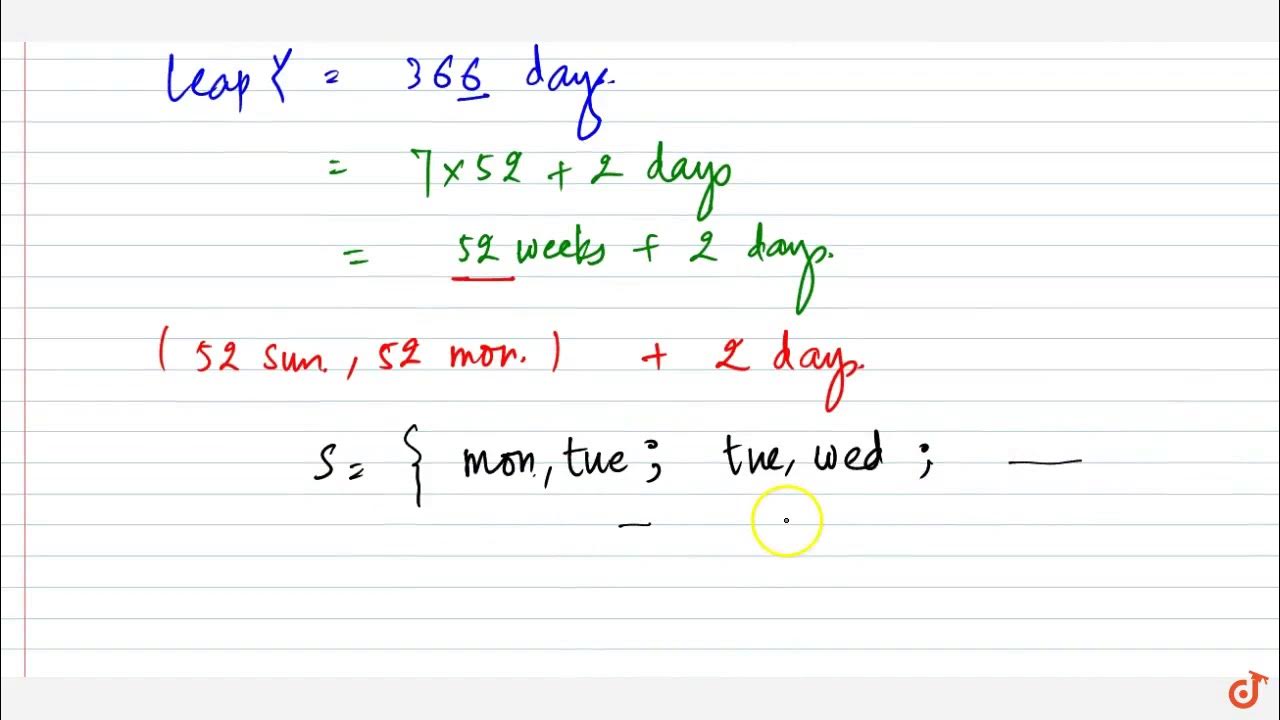 Leap Y = 366 days.
= 7×52 + 2 days
= 52 weeks + 2 days.
( 52 sun. , 52 mon. ) + 2 days.
S = { mon., tue ; tue, wed ; —
—